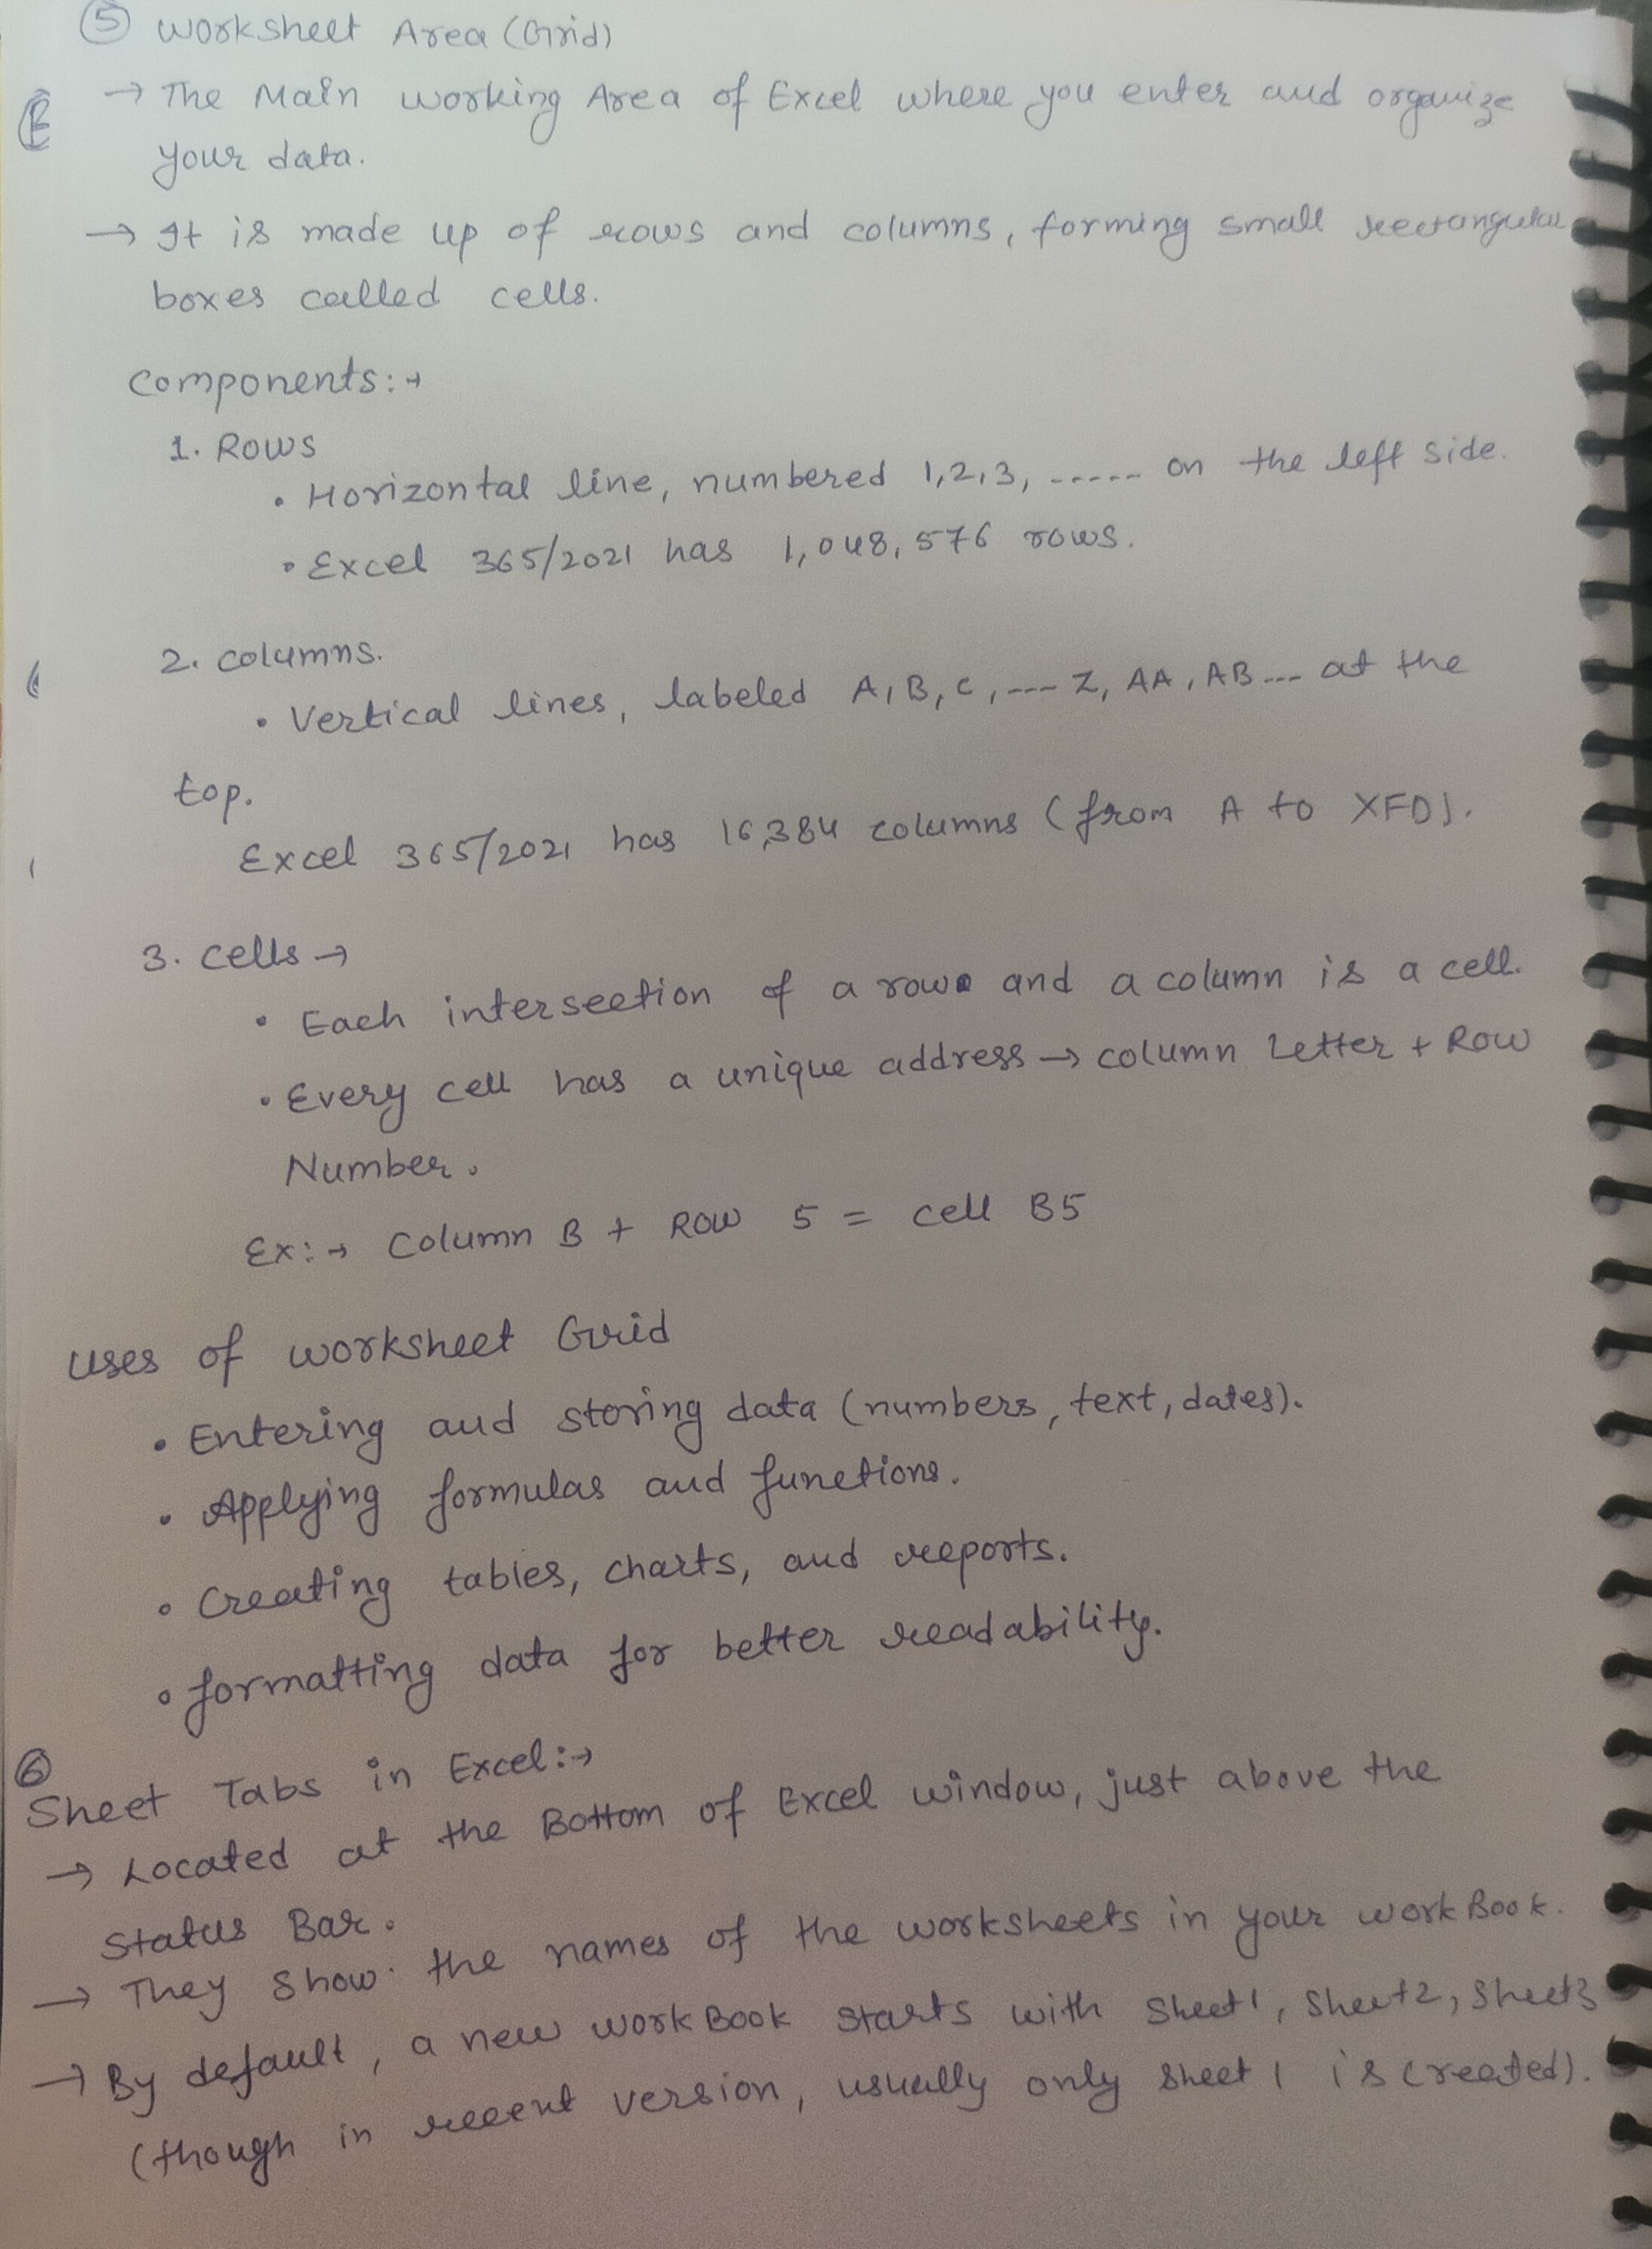 ⑤ Worksheet Area (Grid)
→ The Main working Area of Excel where you enter and organize
your data.
→ It is made up of rows and columns, forming small rectangular
boxes called cells.
Components:→
1. Rows
• Horizontal line, numbered 1,2,3, ----- on the left side.
• Excel 365/2021 has 1,048,576 rows.
2. columns.
• Vertical lines, labeled A, B, C, --- Z, AA, AB --- at the
top.
Excel 365/2021 has 16,384 columns (from A to XFD).
3. cells →
• Each intersection of a row and a column is a cell.
• Every cell has a unique address → column Letter + Row
Number.
Ex:→ Column B + Row 5 = cell B5
Uses of worksheet Grid
• Entering and storing data (numbers, text, dates).
• Applying formulas and functions.
• Creating tables, charts, and reports.
• formatting data for better readability.
⑥
Sheet Tabs in Excel:→
→ Located at the Bottom of Excel window, just above the
Status Bar.
→ They show the names of the worksheets in your workBook.
→ By default, a new workBook starts with Sheet1, Sheet2, Sheet3
(though in recent version, usually only Sheet 1 is created).